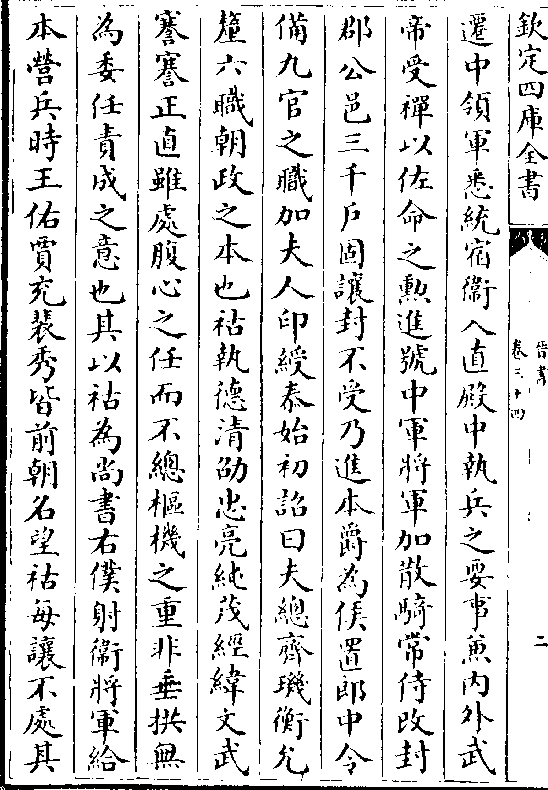 欽定四庫全書
晉書
卷三十四
二
遷中領軍悉統宿衞入直殿中執兵之要事兼內外武
帝受禪以佐命之勲進號中軍將軍加散騎常侍改封
郡公邑三千戶固讓封不受乃進本爵為侯置郎中令
備九官之職加夫人印綬泰始初詔曰夫總齊璣衡允
釐六職朝政之本也祜執德清劭忠亮純茂經緯文武
謇謇正直雖處腹心之任而不總樞機之重非垂拱無
為委任責成之意也其以祜為尚書右僕射衞將軍給
本營兵時王佑賈充裴秀皆前朝名望祜每讓不處其